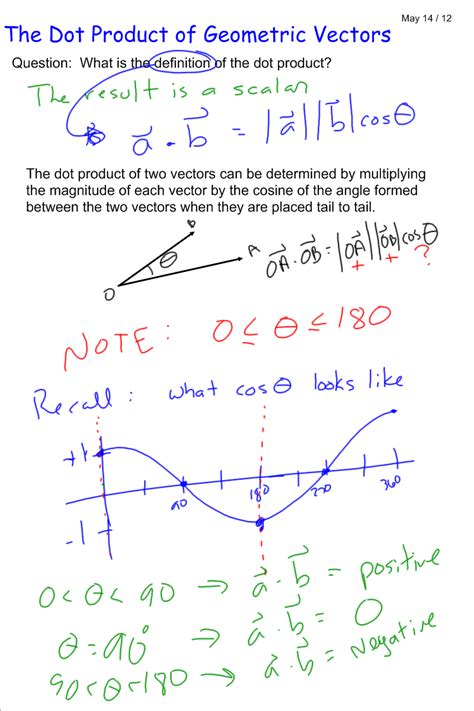 May 14 / 12
The Dot Product of Geometric Vectors
Question: What is the definition of the dot product?
The result is a scalar
a⃗ · b⃗ = |a⃗||b⃗|cosθ
The dot product of two vectors can be determined by multiplying
the magnitude of each vector by the cosine of the angle formed
between the two vectors when they are placed tail to tail.
B
θ
A
O
OA⃗ · OB⃗ = |OA⃗||OB⃗|cosθ
+ + ?
NOTE: 0 ≤ θ ≤ 180
Recall: what cosθ looks like
+1
90
180
270
360
-1
0 < θ < 90 → a⃗ · b⃗ = positive
θ = 90° → a⃗ · b⃗ = 0
90 < θ < 180 → a⃗ · b⃗ = Negative